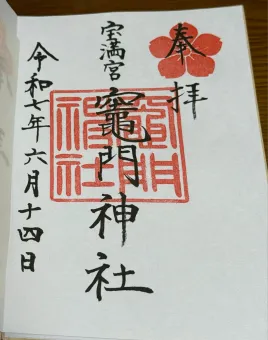 奉拝
宝満宮
竈門神社
令和七年六月十四日
竈門
神社